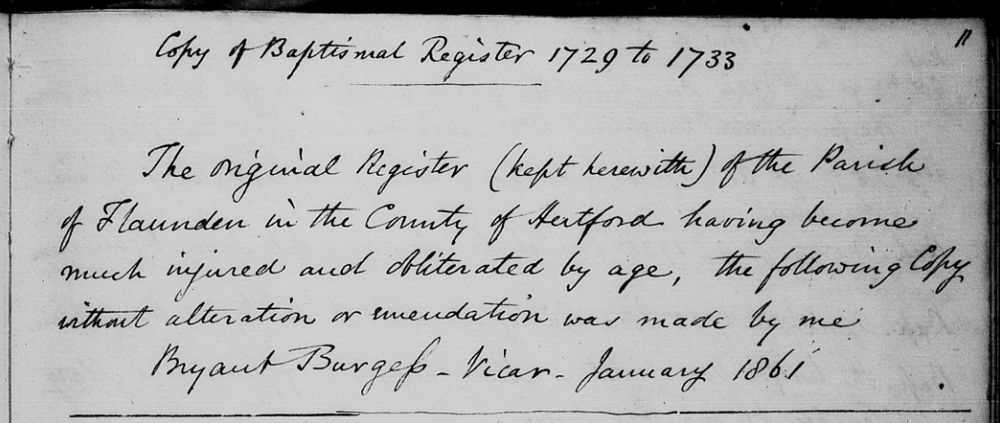 11
Copy of Baptismal Register 1729 to 1733
The original Register (kept herewith) of the Parish
of Flaunden in the County of Hertford having become
much injured and obliterated by age, the following Copy
without alteration or emendation was made by me
Bryant Burgeſs - Vicar - January 1861